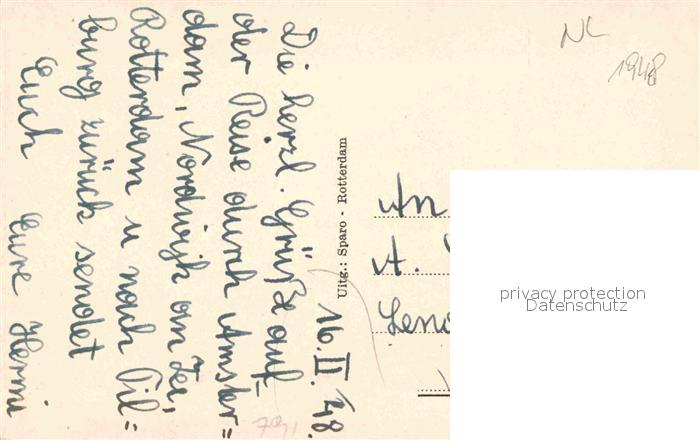 16.II.48.
Die herzl. Grüße auf
der Reise durch Amster=
dam, Nordwijk an Zee,
Rotterdam u nach Til=
burg zurück sendet
Euch Eure Hermi
Uitg.: Sparo - Rotterdam
NL
1948
An
A.
privacy protection
Datenschutz